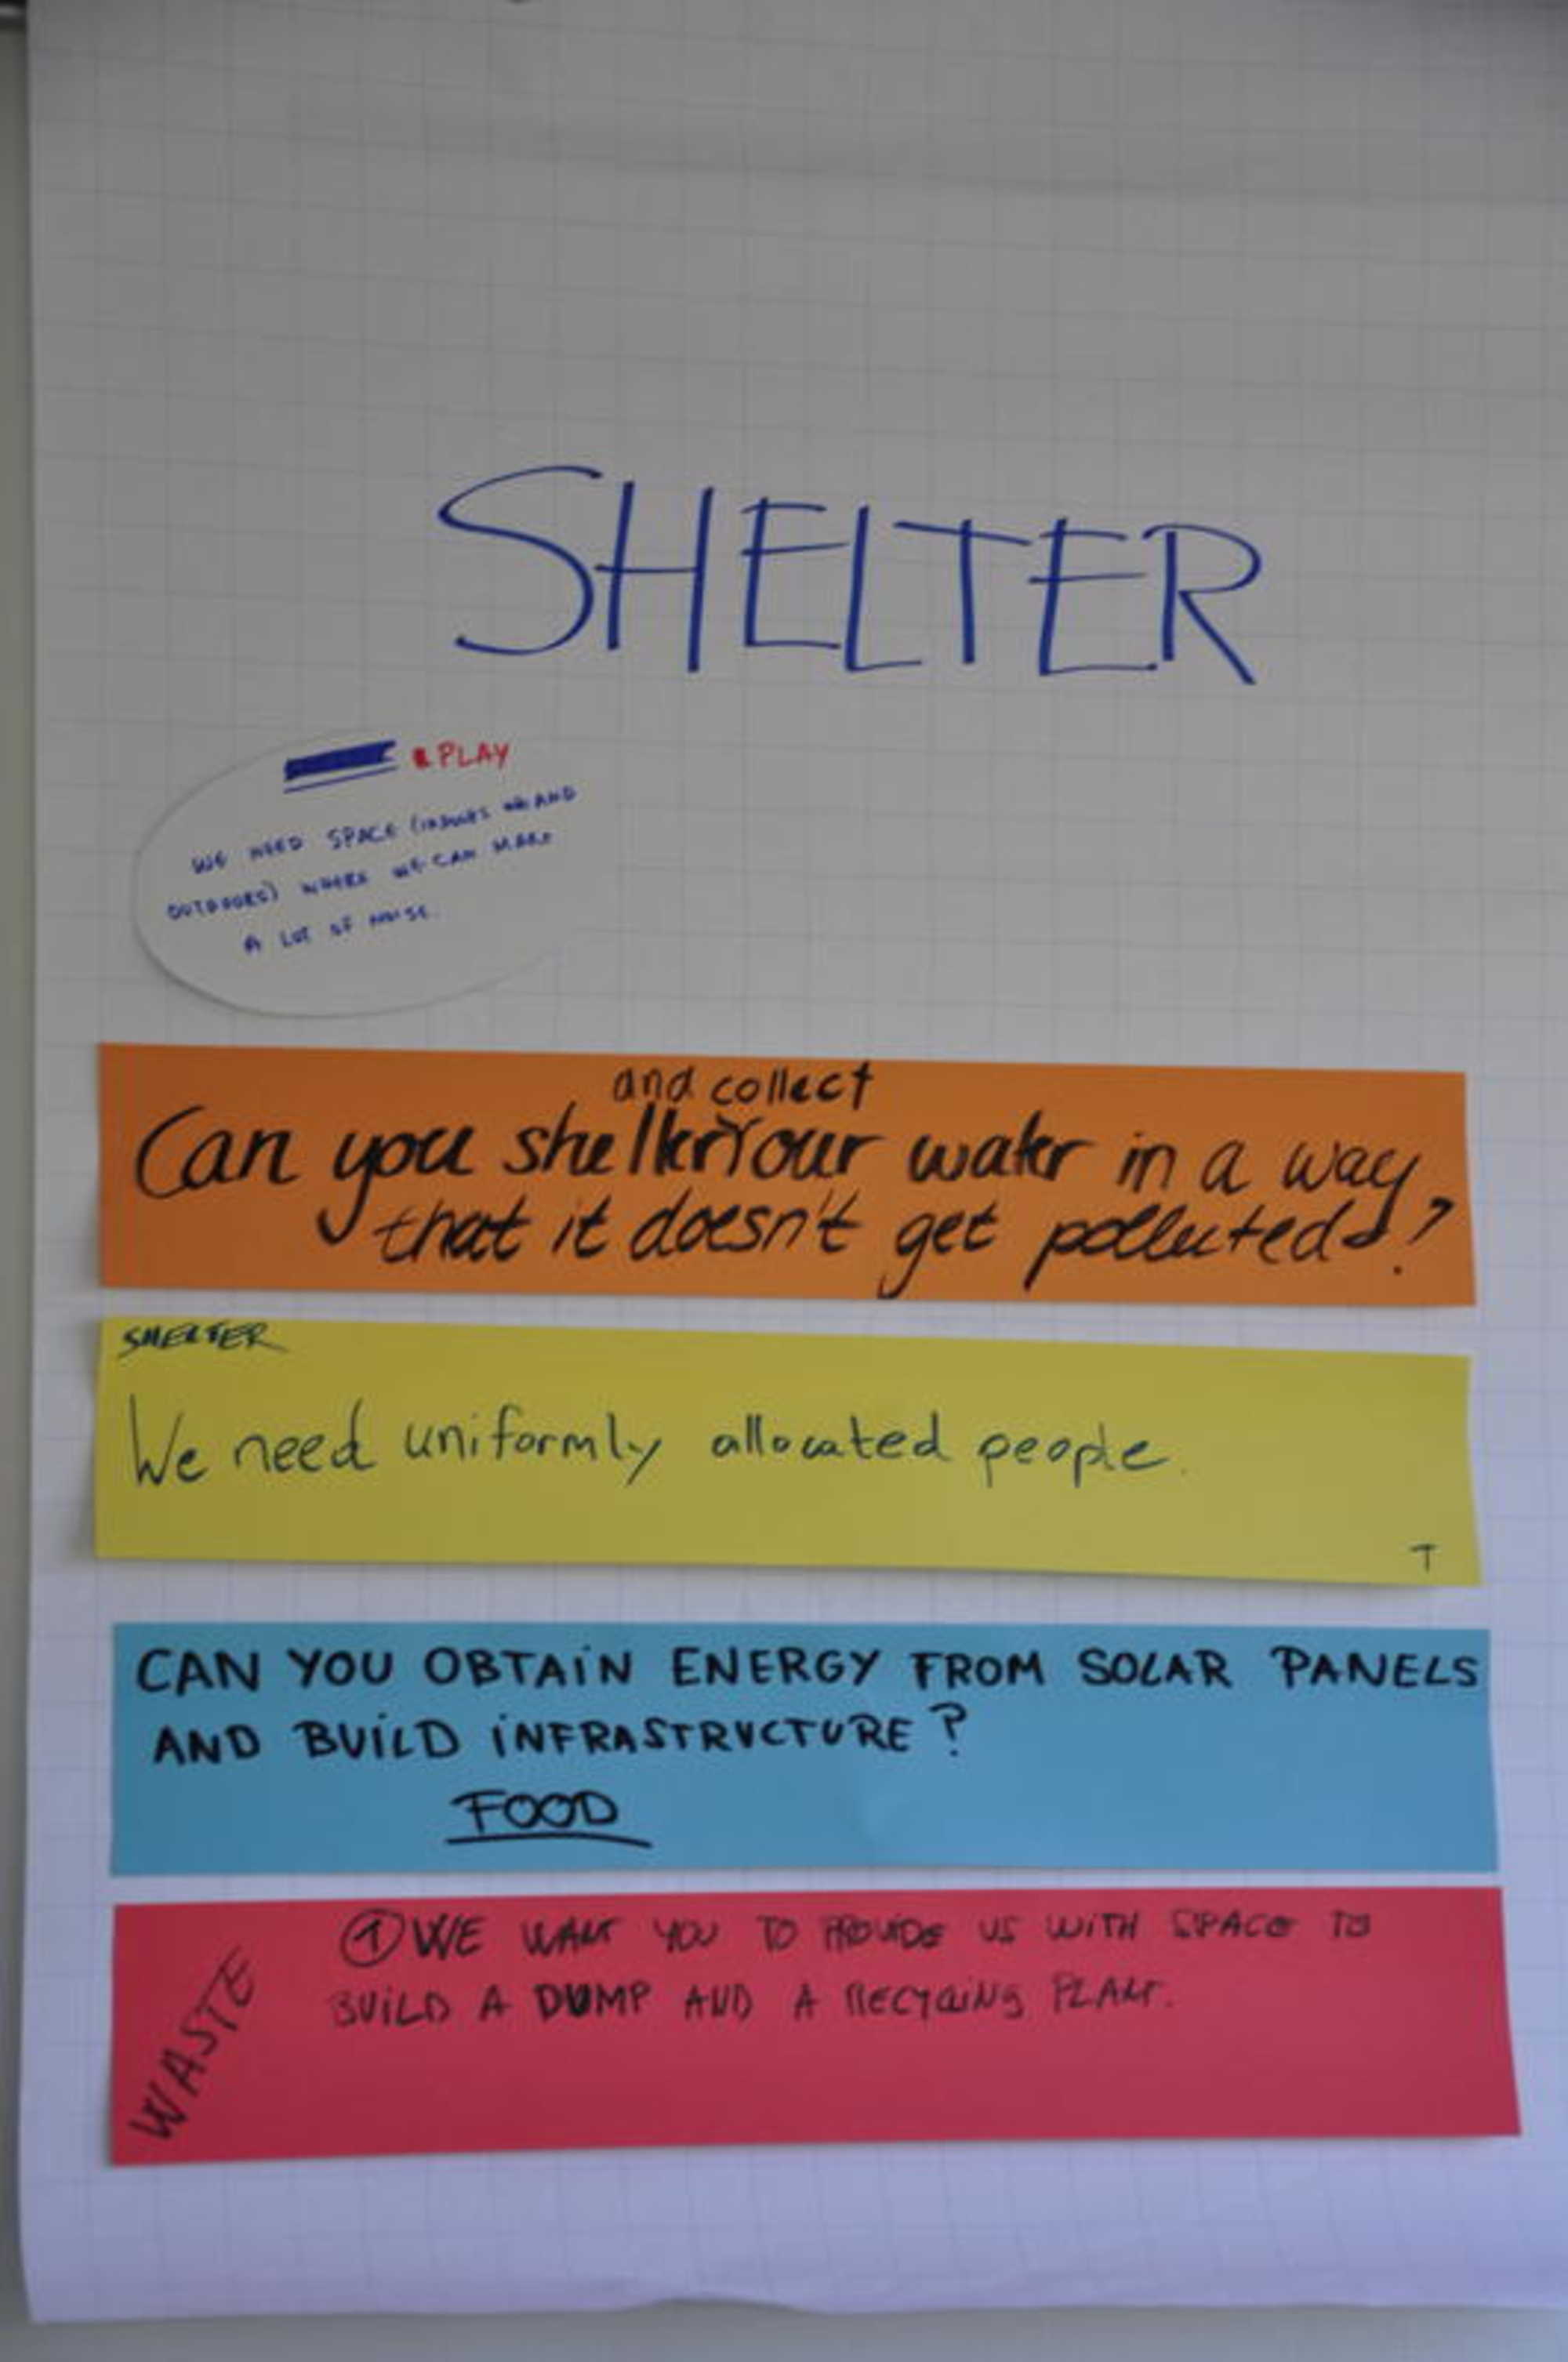 SHELTER
PLAY
WE NEED SPACE (INDOORS AND
OUTDOORS) WHERE WE CAN MAKE
A LOT OF NOISE.
and collect
Can you shelter our water in a way
that it doesn't get polluted?
SHELTER
We need uniformly allocated people.
T
CAN YOU OBTAIN ENERGY FROM SOLAR PANELS
AND BUILD INFRASTRUCTURE?
FOOD
WASTE
① WE WANT YOU TO PROVIDE US WITH SPACE TO
BUILD A DUMP AND A RECYCLING PLANT.